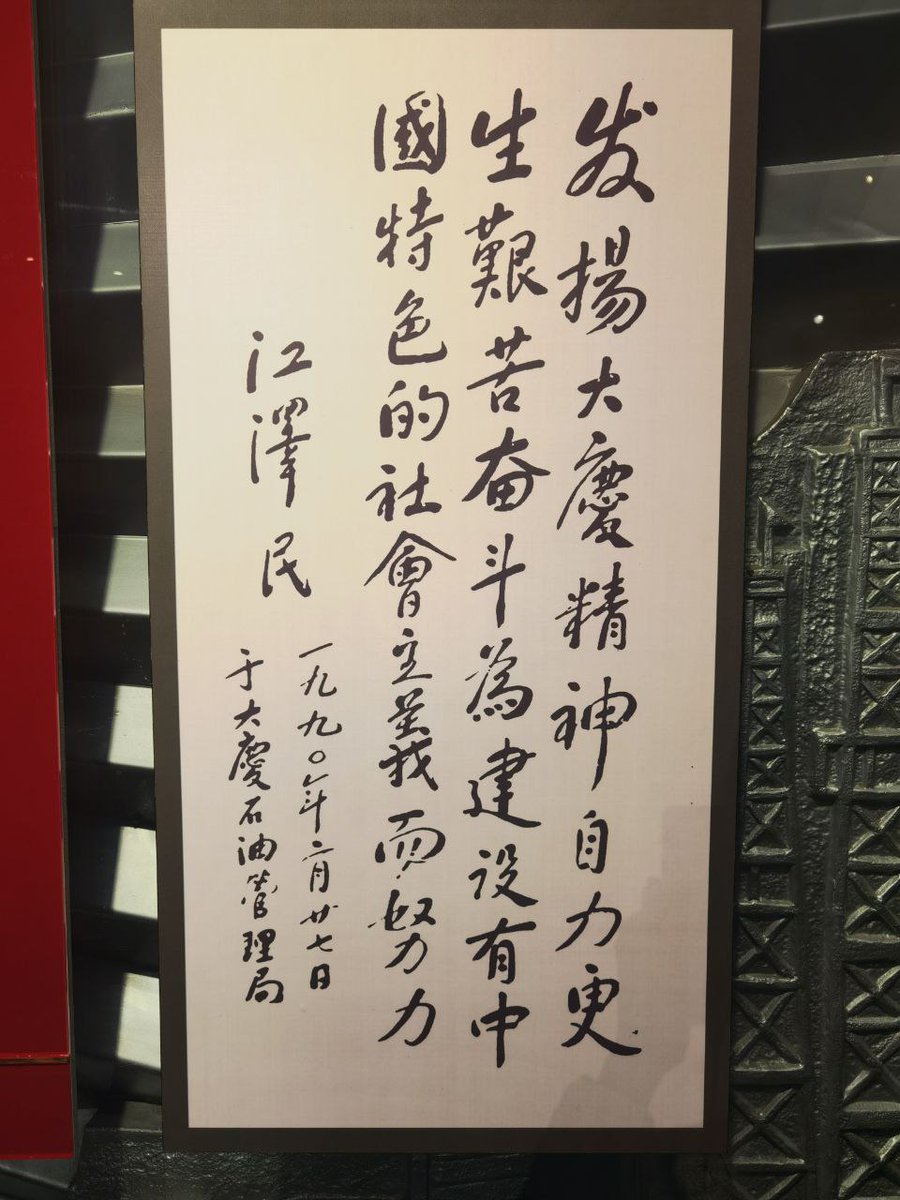 发揚大慶精神自力更
生艱苦奋斗為建设有中
國特色的社會主義而努力
江澤民
一九九〇年二月廿七日
于大慶石油管理局